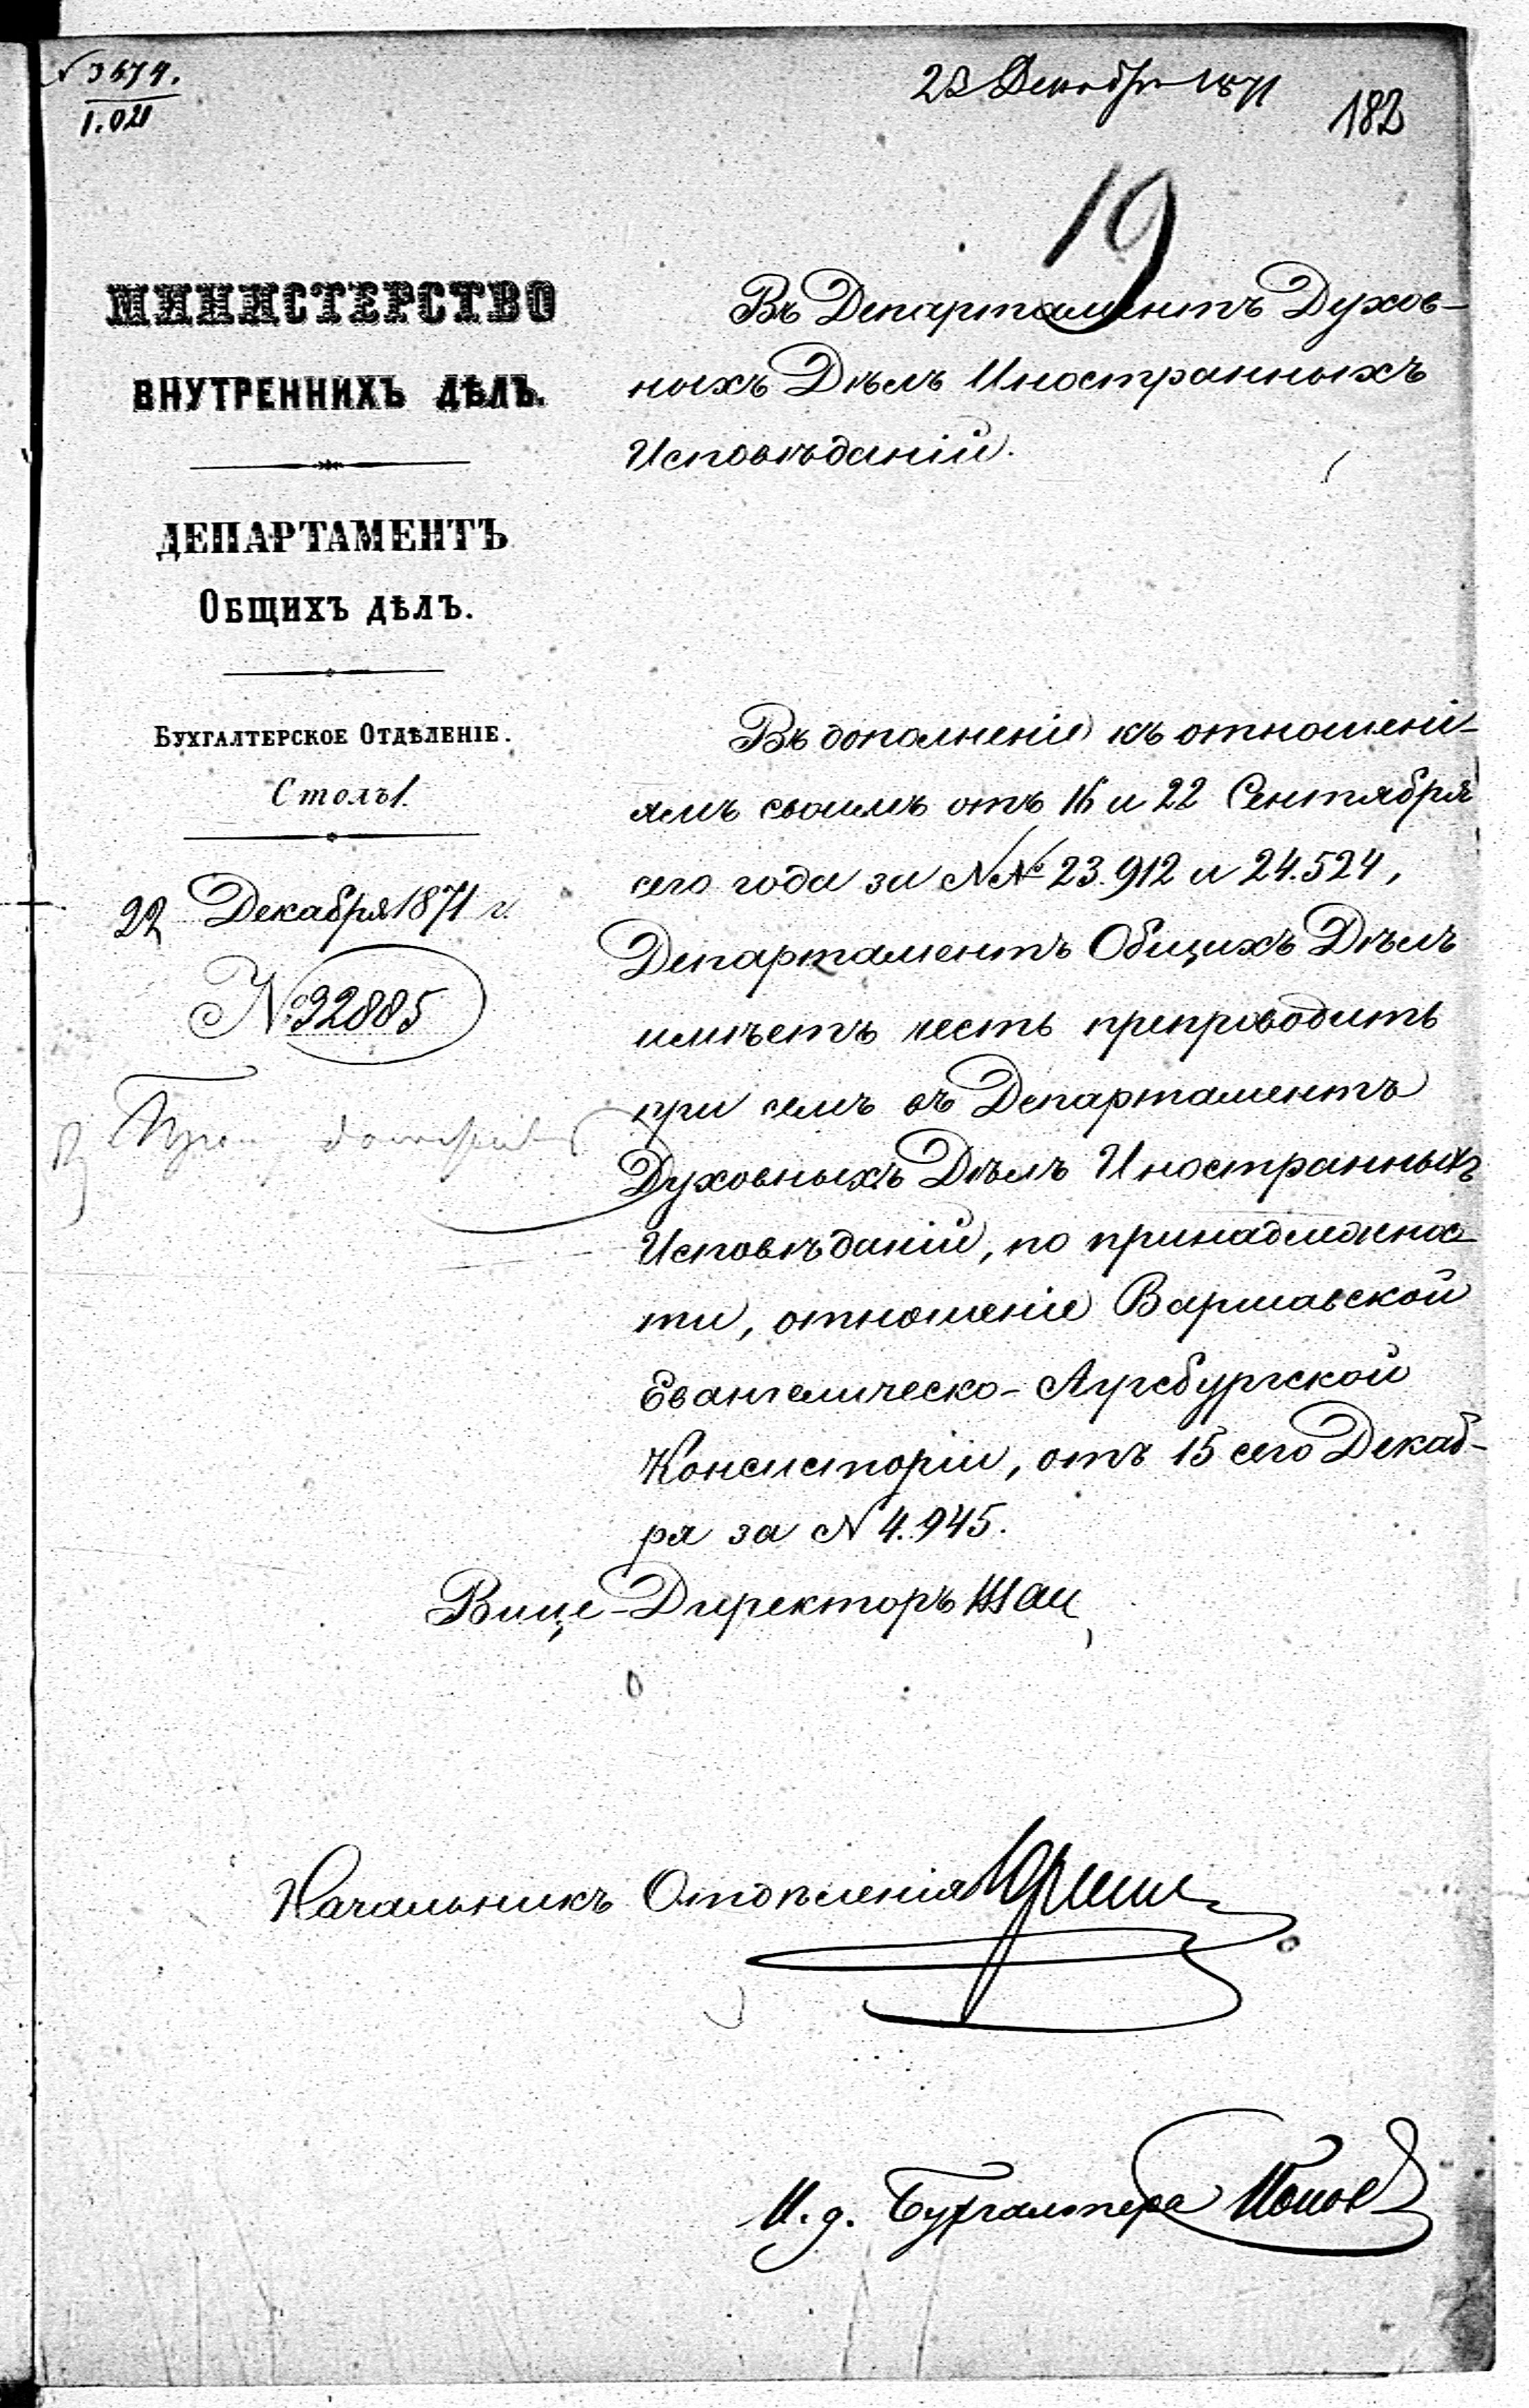 23 Декабря 1871
182
19
МИНИСТЕРСТВО
ВНУТРЕННИХЪ ДѢЛЪ.
ДЕПАРТАМЕНТЪ
ОБЩИХЪ ДѢЛЪ.
БУХГАЛТЕРСКОЕ ОТДѢЛЕНІЕ.
Столъ 1.
22 Декабря 1871 г.
№ 32885
Въ Департаментъ Духов-
ныхъ Дѣлъ Иностранныхъ
Исповѣданій.
Въ дополненіе къ отношені-
ямъ своимъ отъ 16 и 22 Сентября
сего года за №№ 23.912 и 24.524,
Департаментъ Общихъ Дѣлъ
имѣетъ честь препроводить
при семъ въ Департаментъ
Духовныхъ Дѣлъ Иностранныхъ
Исповѣданій, по принадлежнос-
ти, отношеніе Варшавской
Евангелическо-Аугсбургской
Консисторіи, отъ 15 сего Декаб-
ря за N 4.945.
Вице-Директоръ
Начальникъ Отдѣленія
И. д. Бухгалтера Поповъ